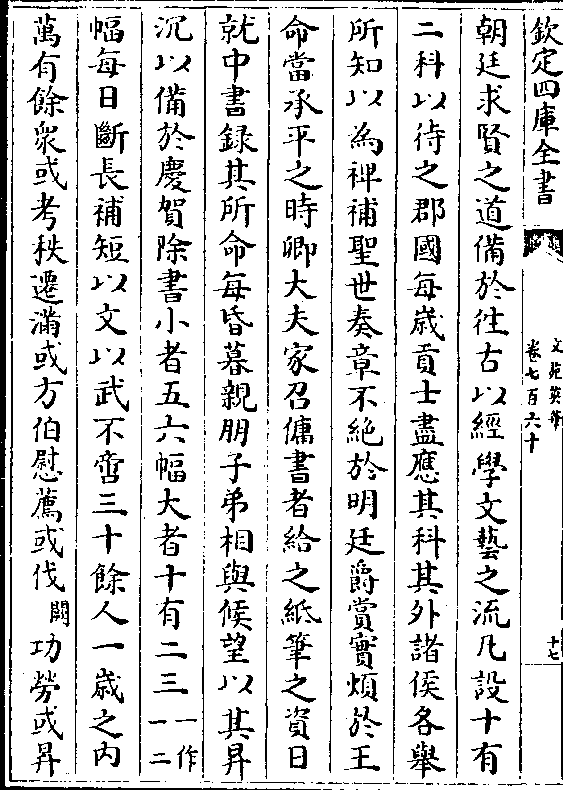 欽定四庫全書
文苑英華
卷七百六十
十七
朝廷求賢之道備於徃古以經學文藝之流凡設十有
二科以待之郡國每歲貢士盡應其科其外諸侯各舉
所知以為裨補聖世奏章不絶於明廷爵賞實煩於王
命當承平之時卿大夫家召傭書者給之紙筆之資日
就中書録其所命每昏暮親朋子弟相與候望以其昇
沉以備於慶賀除書小者五六幅大者十有二三一作一二
幅每日斷長補短以文以武不啻三十餘人一歲之內
萬有餘衆或考秩遷滿或方伯慰薦或伐闕功勞或昇